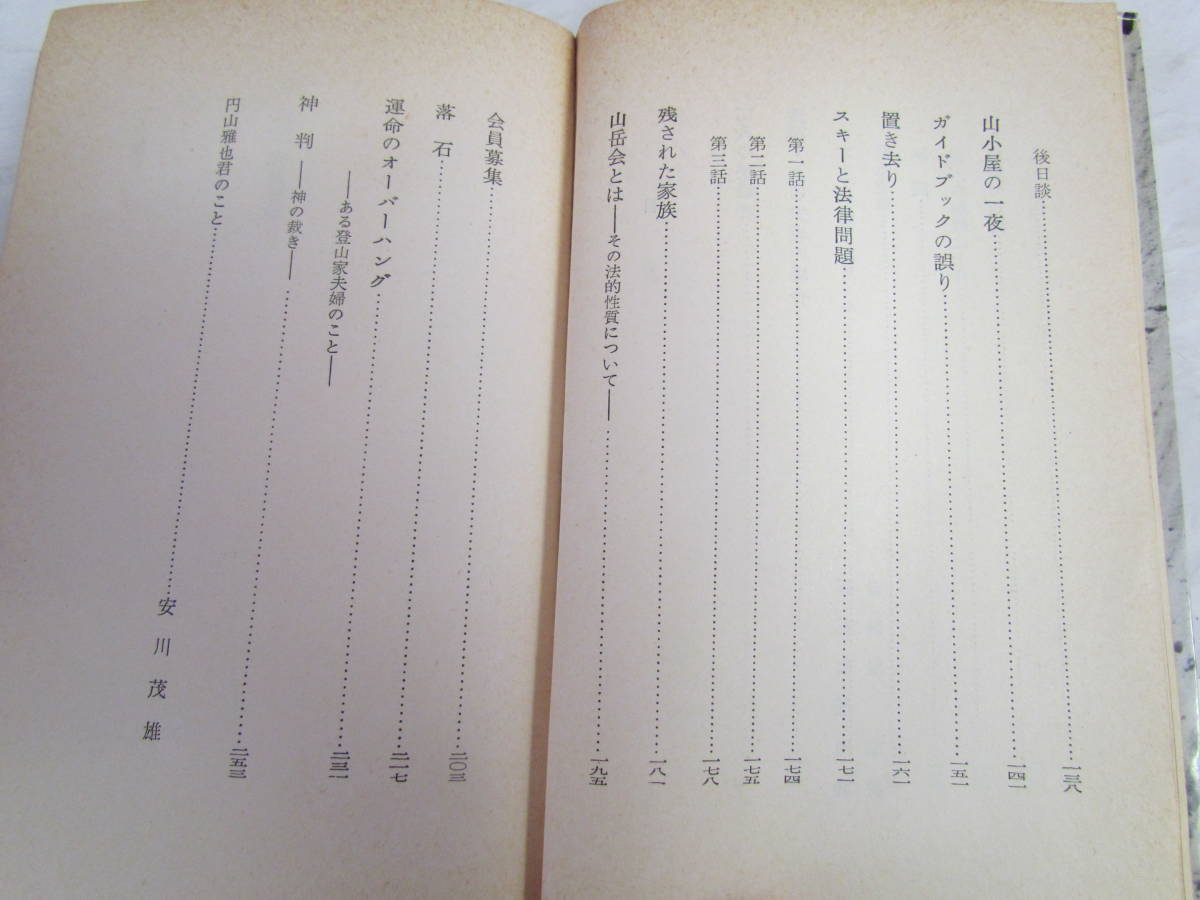 後日談…………一三八
山小屋の一夜…………一四一
ガイドブックの誤り…………一五一
置き去り…………一六一
スキーと法律問題…………一七一
第一話…………一七四
第二話…………一七五
第三話…………一七八
残された家族…………一八一
山岳会とは――その法的性質について――…………一九五
会員募集…………二〇三
落石…………二一七
運命のオーバーハング…………二三一
――ある登山家夫婦のこと――
神判――神の裁き――…………二五三
円山雅也君のこと…………安川茂雄